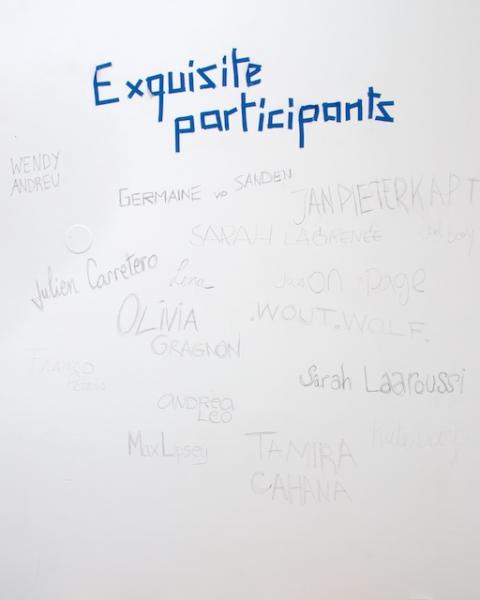 Exquisite
participants
WENDY
ANDREU
GERMAINE vo SANDEN
JAN PIETER KAPT
SARAH LAGRENÉE
Julien Carretero
Lena
Jason Page
OLIVIA
GRAGNON
.WOUT.WOLF.
Franco
Sarah Laaroussi
ANDREA
LEO
MaxLipsey
TAMIRA
CAHANA